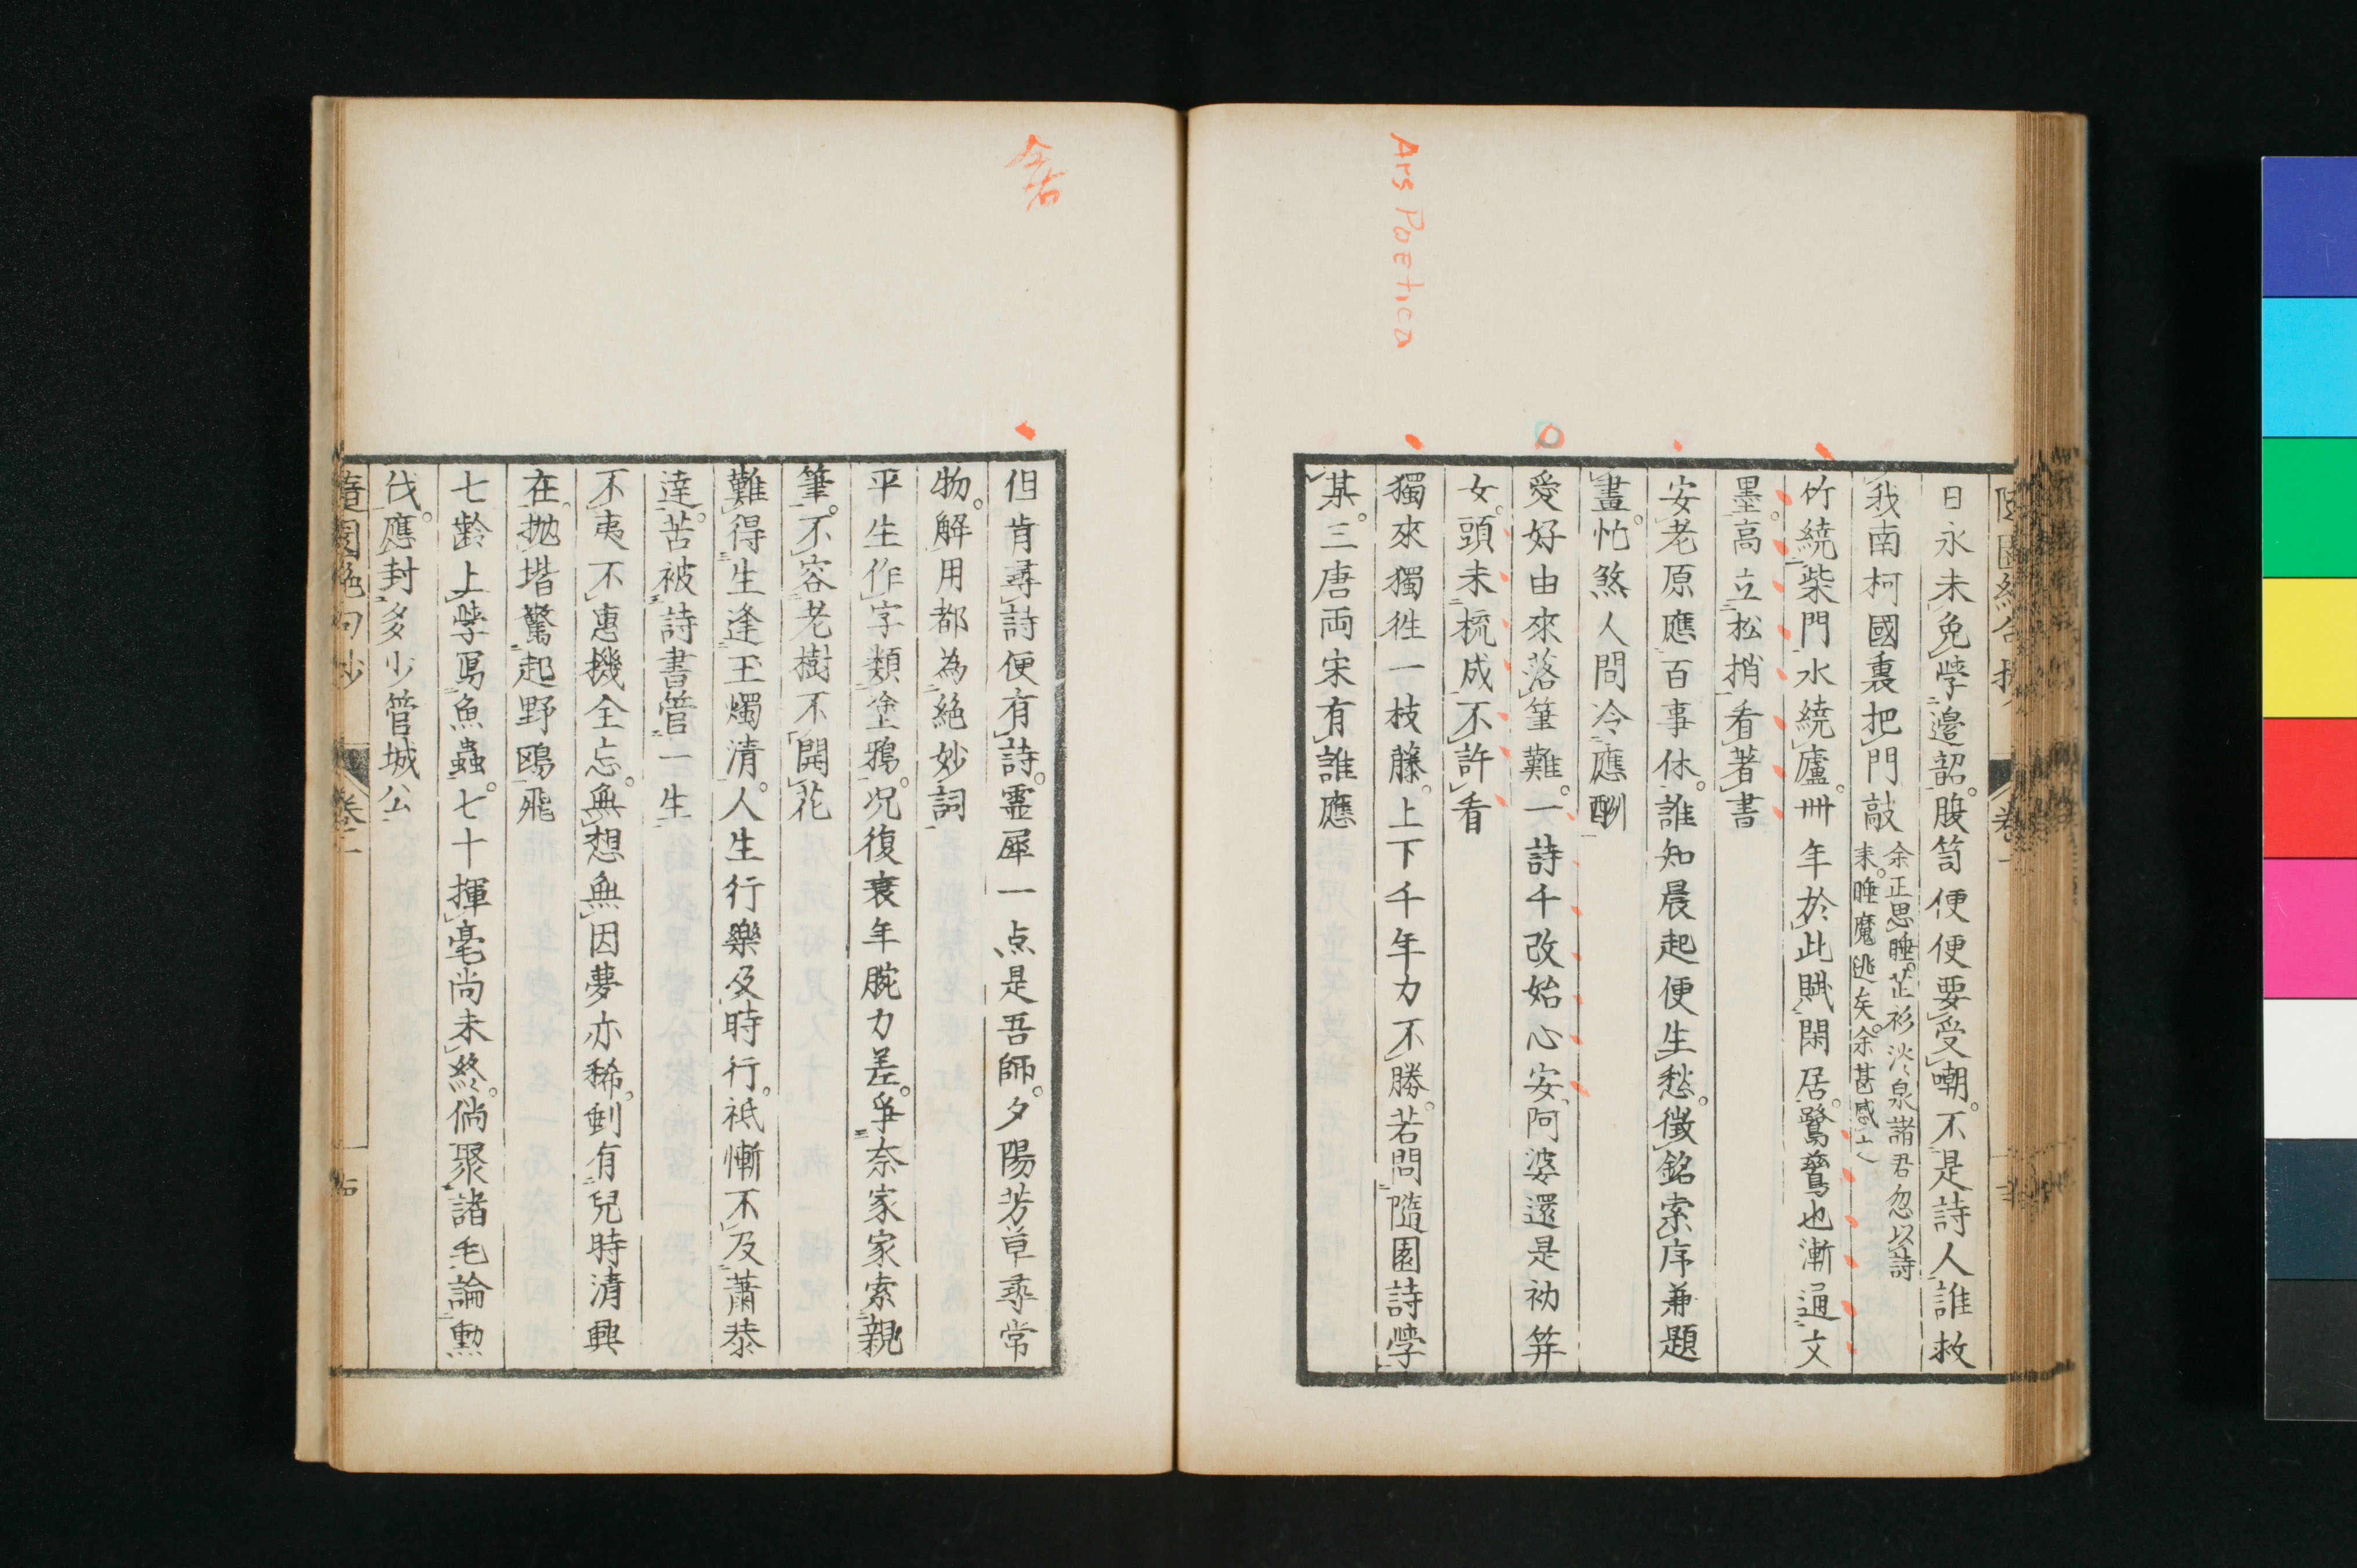 Ars Poetica
日永未免學邊韶。腹笥便便要受嘲。不是詩人誰救
我南柯國裏把門敲
余正思睡。芷衫淡泉諸君忽以詩
来。睡魔逃矣。余甚感之
竹繞柴門水繞廬。卌年於此賦閑居。鷺鶿也漸通文
墨。高立松梢看著書
安老原應百事休。誰知晨起便生愁。徵銘索序兼題
畫。忙煞人問冷應酬
愛好由來落筆難。一詩千改始心安。阿婆還是初笄
女。頭未梳成不許看
獨來獨往一枝藤。上下千年力不勝。若問隨園詩學
某。三唐兩宋有誰應
仝右
但肯尋詩便有詩。霊犀一点是吾師。夕陽芳草尋常
物。解用都為絶妙詞
平生作字類塗鴉。况復衰年腕力差。爭奈家家索親
筆。不容老樹不開花
難得生逢玉燭清。人生行樂及時行。祗慚不及蕭恭
達。苦被詩書管一生
不夷不惠機全忘。無想無因夢亦稀。剩有兒時清興
在。抛堦驚起野鴎飛
七齡上學寫魚蟲。七十揮毫尚未終。倘聚諸毛論勲
伐。應封多少管城公
隨園絶句抄 卷二